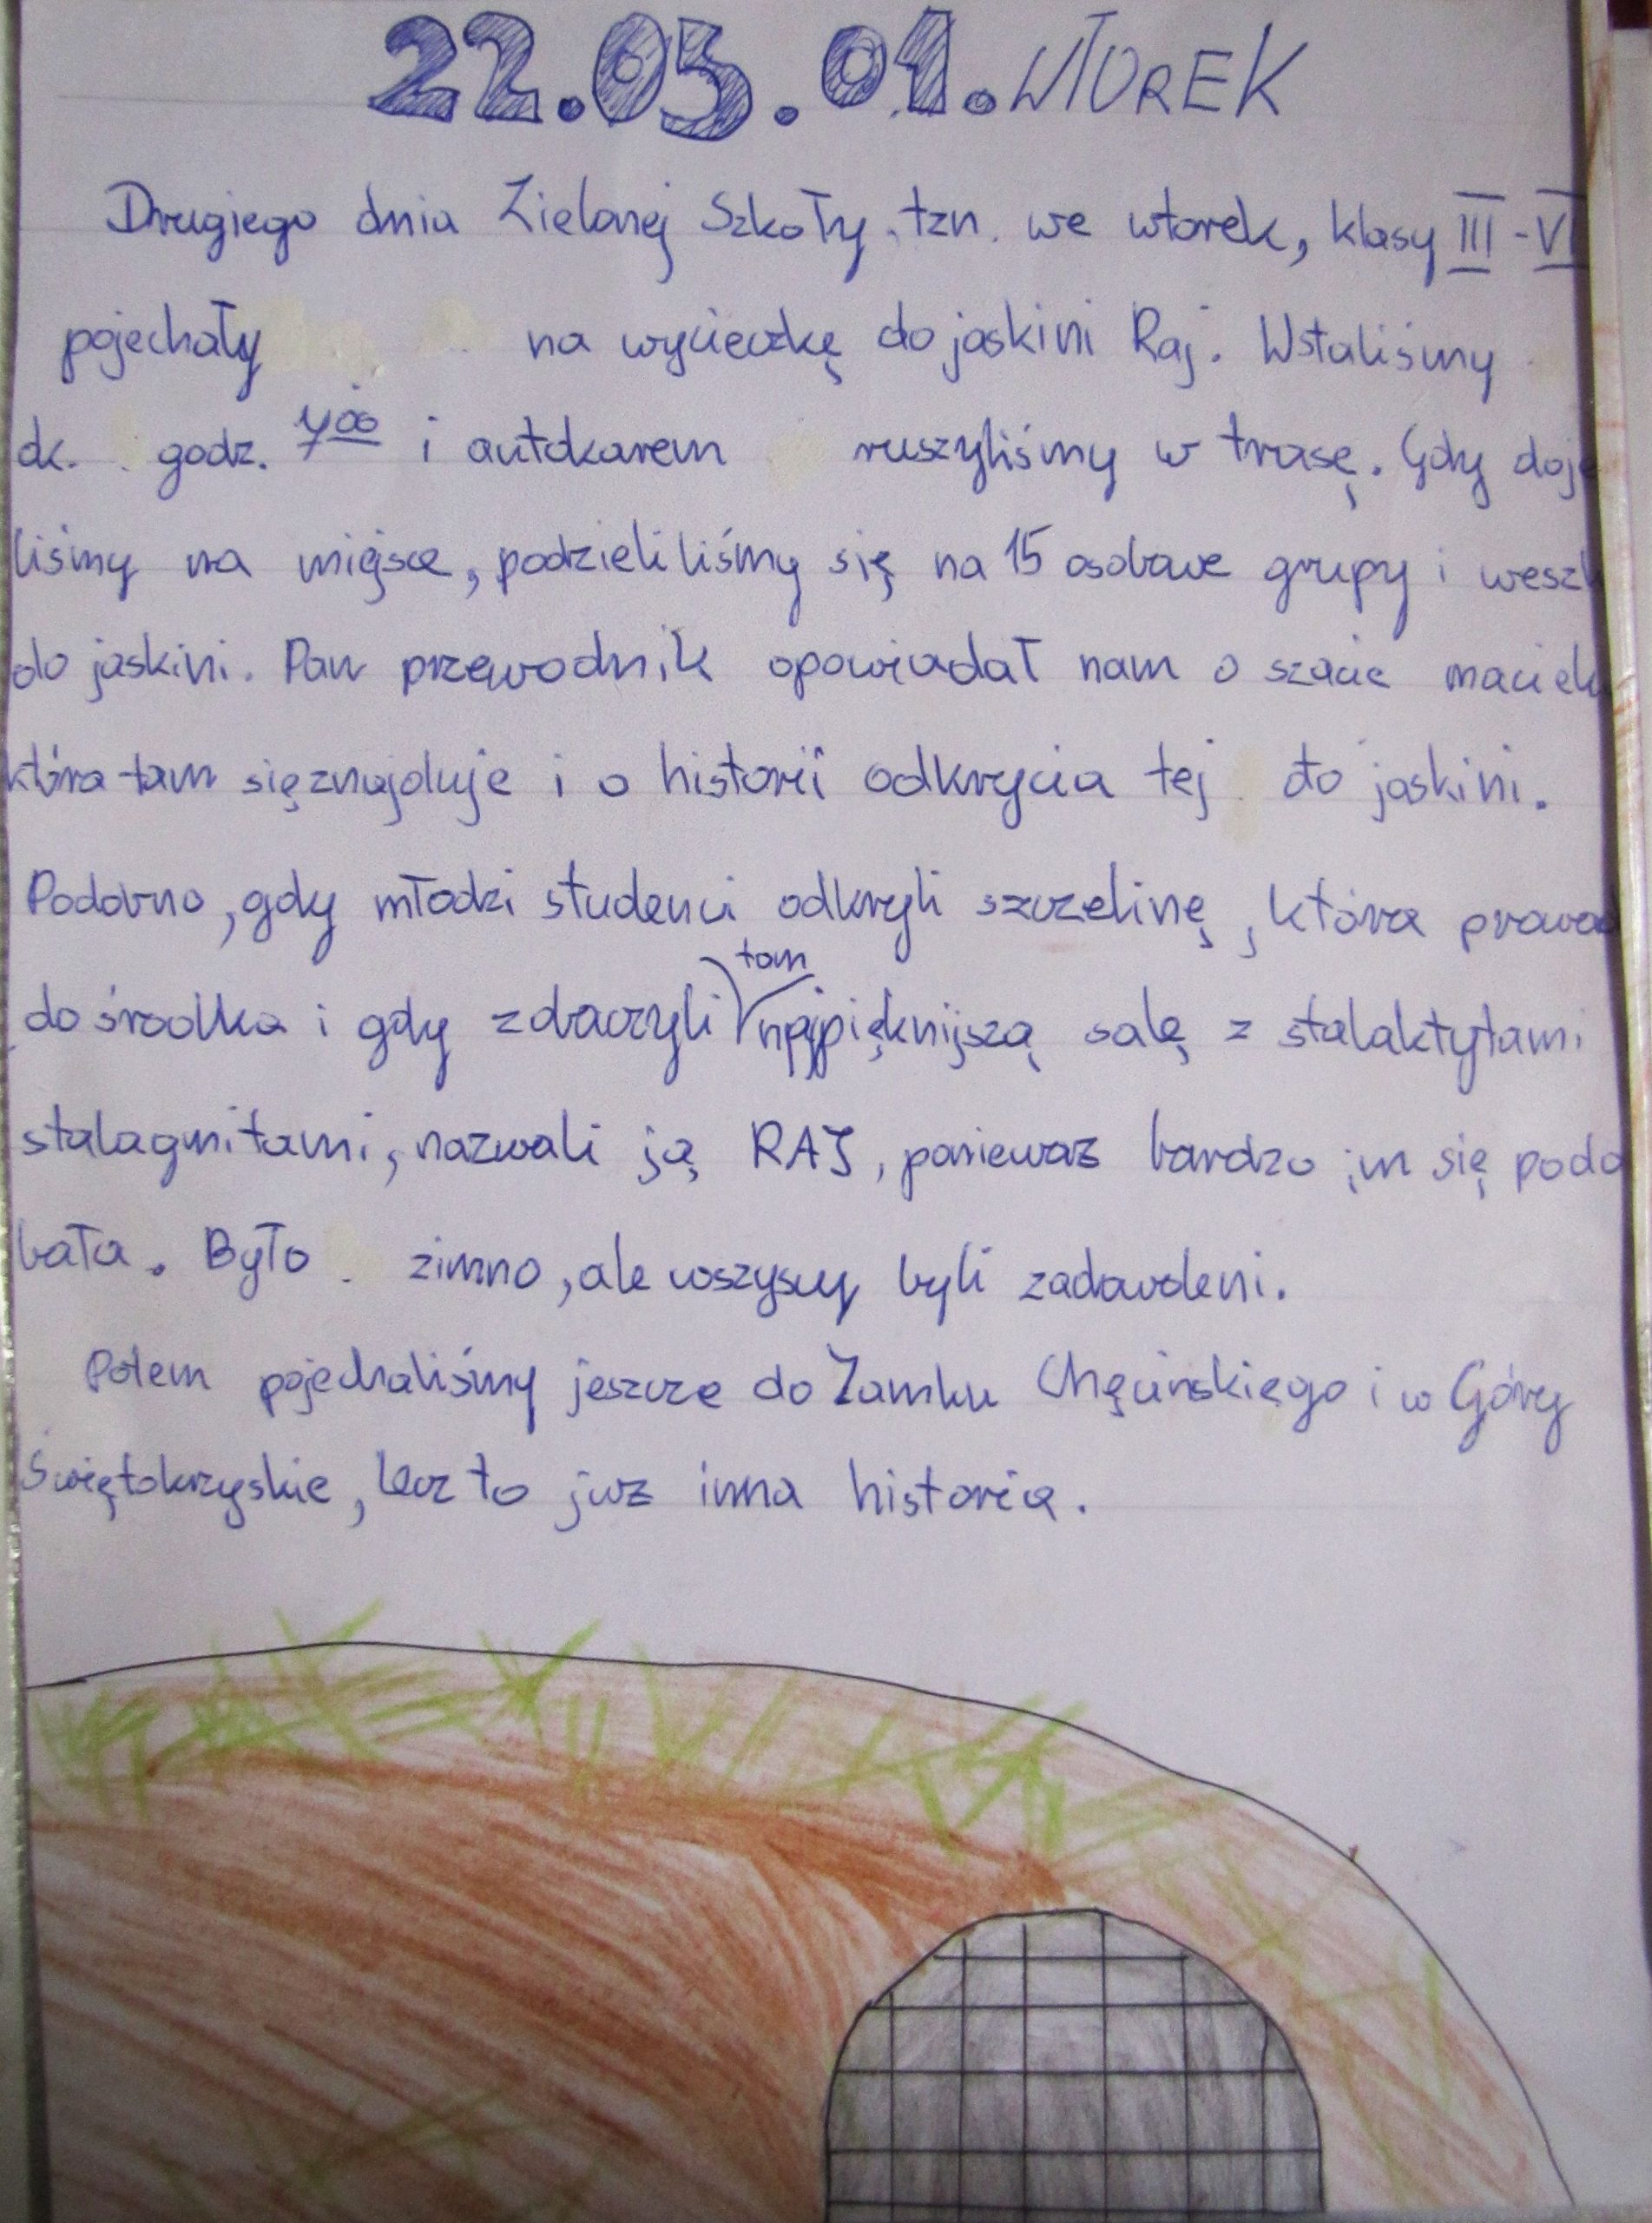 22.05.01. WTOREK
Drugiego dnia Zielonej Szkoły, tzn. we wtorek, klasy III-VI
pojechały na wycieczkę do jaskini Raj. Wstaliśmy
ok. godz. 7 00 i autokarem ruszyliśmy w trasę. Gdy doje
liśmy na miejsce, podzieliliśmy się na 15 osobowe grupy i weszl
do jaskini. Pan przewodnik opowiadał nam o szacie naciek
która tam się znajduje i o historii odkrycia tej do jaskini.
Podobno, gdy młodzi studenci odkryli szczelinę, która prowad
do środka i gdy zobaczyli tam najpięknijszą salę z stalaktytami
stalagmitami, nazwali ją RAJ, ponieważ bardzo im się podo
bała. Było zimno, ale wszyscy byli zadowoleni.
Potem pojechaliśmy jeszcze do Zamku Chęcińskiego i w Góry
Świętokrzyskie, lecz to już inna historia.